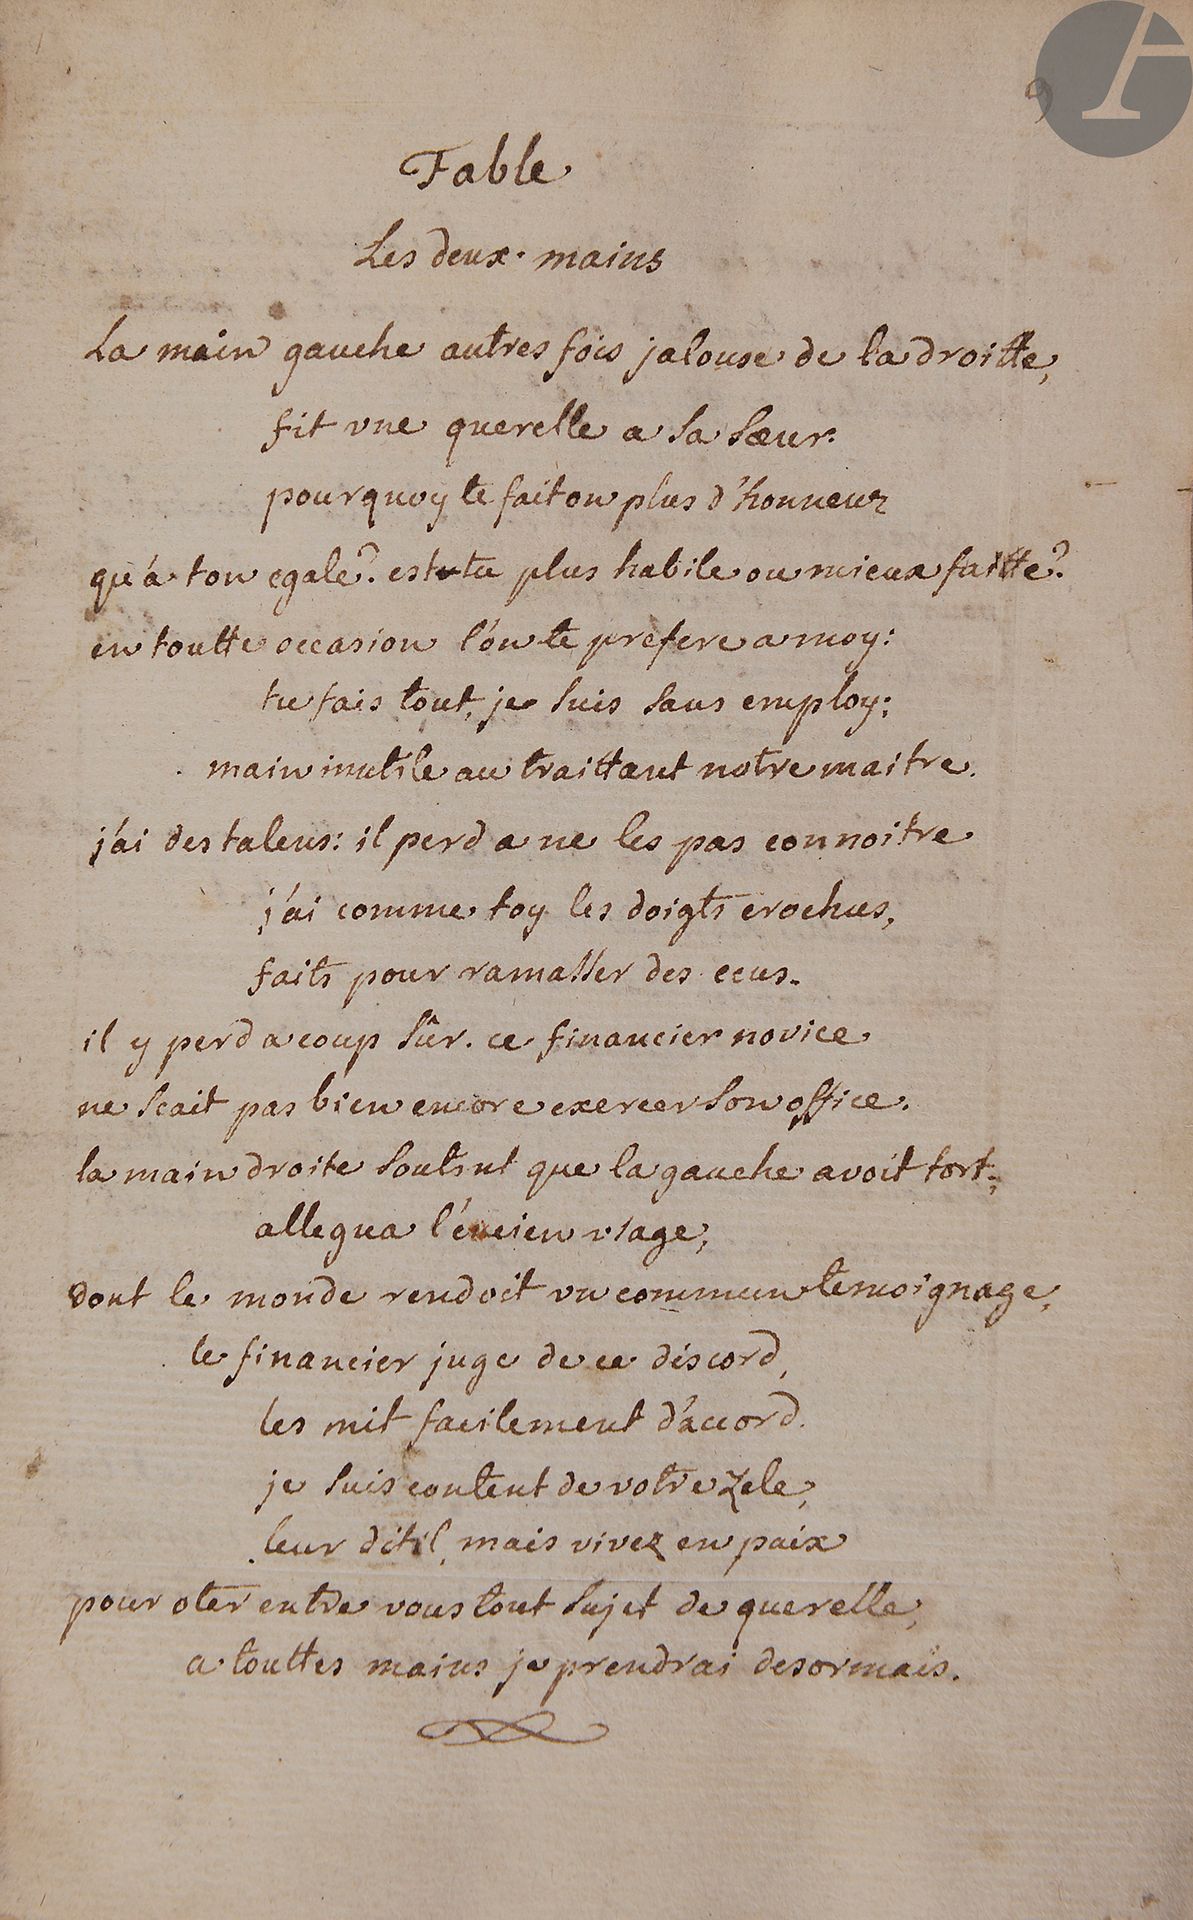 9
Fable
Les deux mains
La main gauche autres fois jalouse de la droitte,
fit vne querelle a sa sœur.
pourquoy te fait on plus d'honneur
qu'à ton egale? es tu plus habile ou mieux faitte?
en toutte occasion l'on te prefere a moy:
tu fais tout, je suis sans employ;
main inutile au traittant notre maitre.
j'ai des talens: il perd a ne les pas connoitre
j'ai comme toy les doigts crochus,
faits pour ramasser des ecus.
il y perd a coup sûr. ce financier novice
ne scait pas bien encore exercer son office.
la main droite soutint que la gauche avoit tort;
allegua l'encien vsage;
dont le monde rendoit vn commun temoignage,
le financier juge de ce discord,
les mit facilement d'accord.
je suis content de votre zele,
leur dit il, mais vivez en paix
pour oter entre vous tout sujet de querelle,
a touttes mains je prendrai desormais.